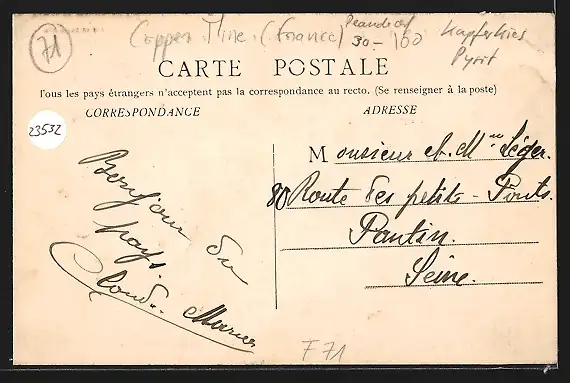 71
Copper Mine. (France)
30- 100
Kupferkies
Pyrit
CARTE POSTALE
Tous les pays étrangers n'acceptent pas la correspondance au recto. (Se renseigner à la poste)
CORRESPONDANCE
ADRESSE
23532
Monsieur et Mme Léger.
80 Route des petits-Ponts.
Pantin.
Seine.
Bonjour du
pays.
F 71